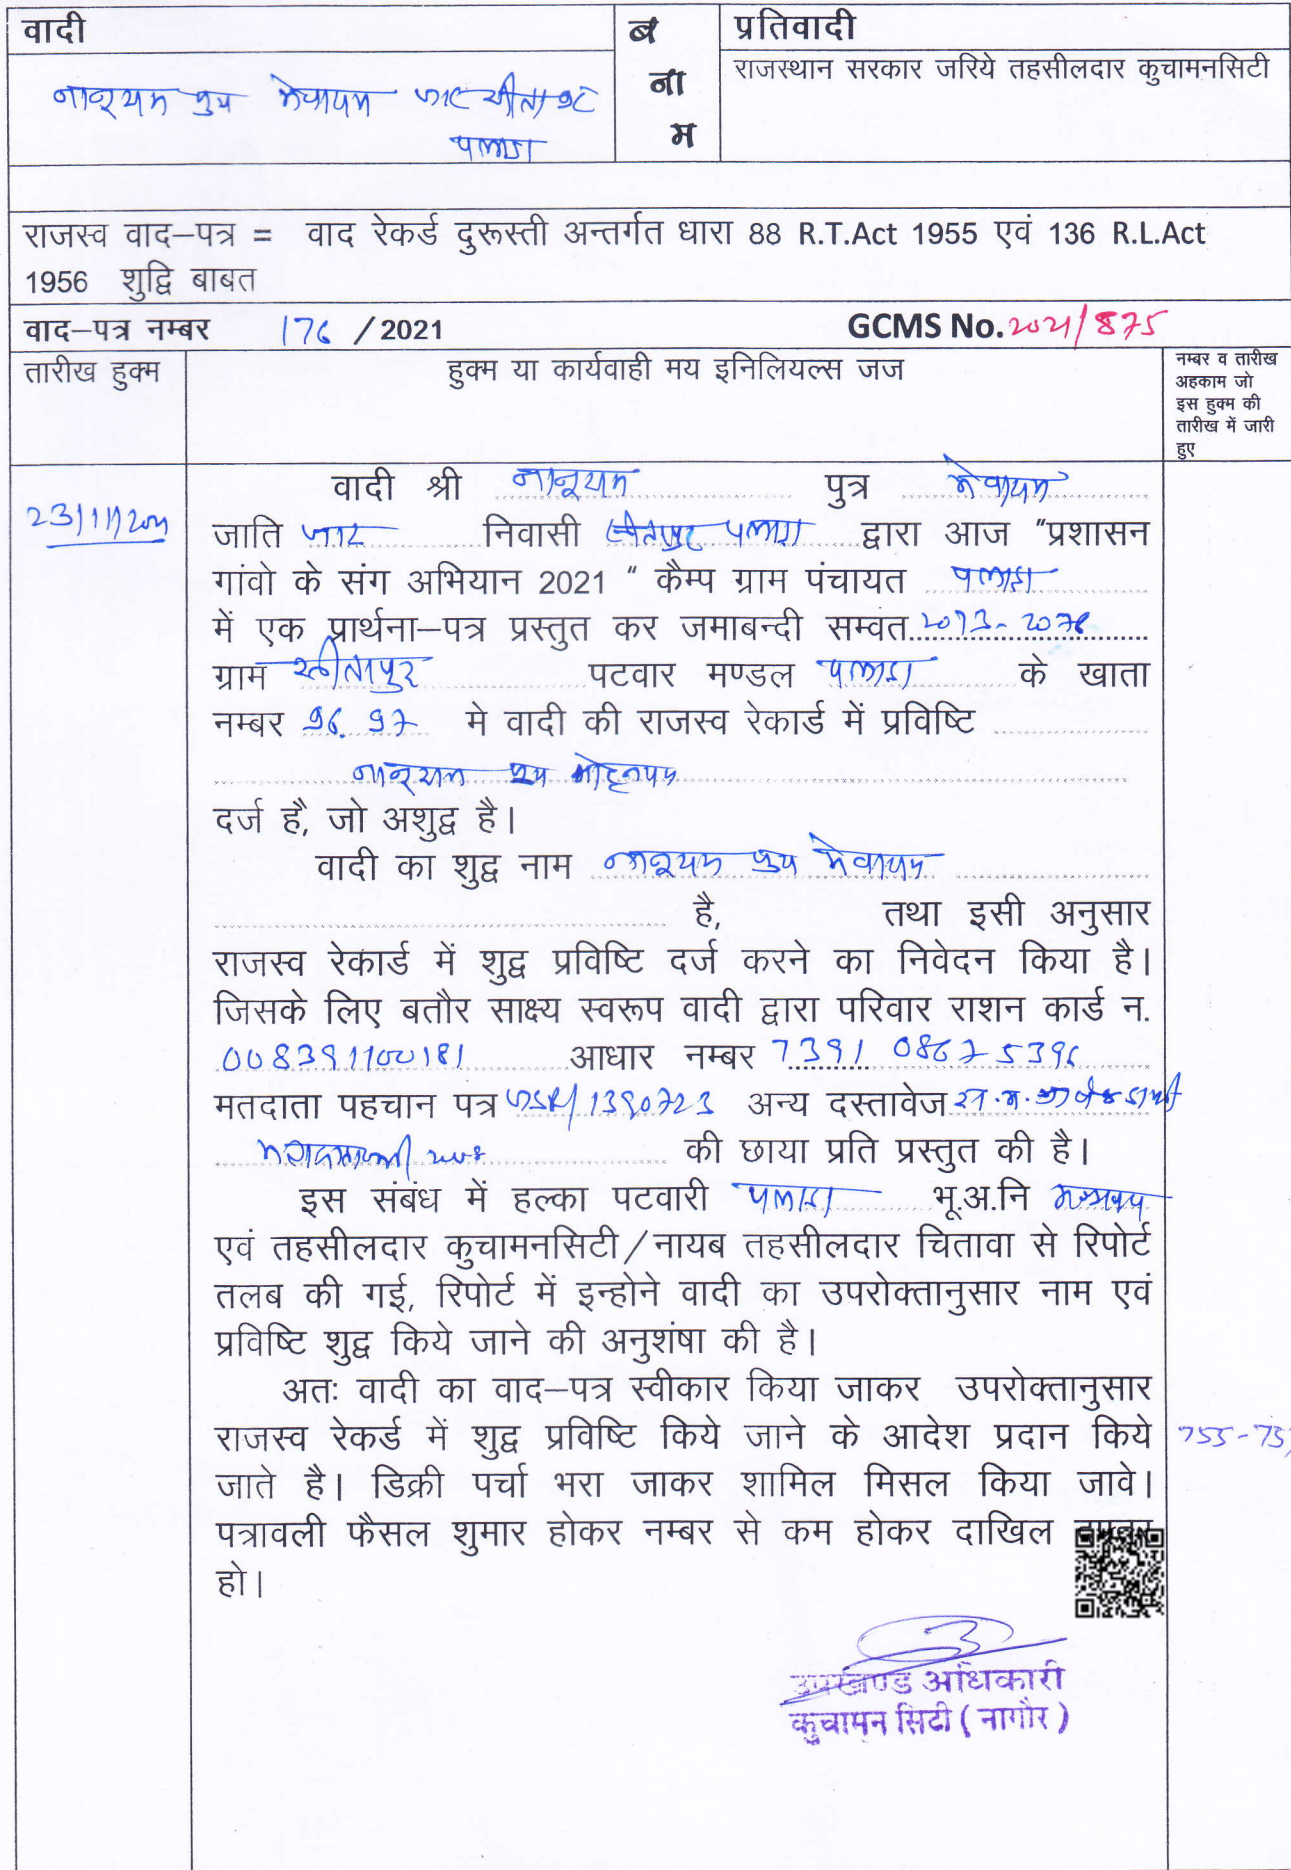 वादी
ब
ना
म
प्रतिवादी
नानूराम पुत्र मेवाराम जाट
पलाडा
राजस्थान सरकार जरिये तहसीलदार कुचामनसिटी
राजस्व वाद–पत्र = वाद रेकर्ड दुरूस्ती अन्तर्गत धारा 88 R.T.Act 1955 एवं 136 R.L.Act
1956 शुद्वि बाबत
वाद–पत्र नम्बर 176 / 2021 GCMS No. 2021/875
तारीख हुक्म
हुक्म या कार्यवाही मय इनिलियल्स जज
नम्बर व तारीख
अहकाम जो
इस हुक्म की
तारीख में जारी
हुए
23/11/2021
वादी श्री नानूराम पुत्र मेवाराम
जाति जाट निवासी पलाडा द्वारा आज "प्रशासन
गांवो के संग अभियान 2021 " कैम्प ग्राम पंचायत पलाडा
में एक प्रार्थना–पत्र प्रस्तुत कर जमाबन्दी सम्वत 2073-2076
ग्राम पटवार मण्डल पलाडा के खाता
नम्बर 96. 97 मे वादी की राजस्व रेकार्ड में प्रविष्टि
नानूराम पुत्र
दर्ज है, जो अशुद्व है।
वादी का शुद्व नाम नानूराम पुत्र मेवाराम
है, तथा इसी अनुसार
राजस्व रेकार्ड में शुद्व प्रविष्टि दर्ज करने का निवेदन किया है।
जिसके लिए बतौर साक्ष्य स्वरूप वादी द्वारा परिवार राशन कार्ड न.
008391100181 आधार नम्बर 7391 0867 5396
मतदाता पहचान पत्र अन्य दस्तावेज
की छाया प्रति प्रस्तुत की है।
इस संबंध में हल्का पटवारी पलाडा भू.अ.नि
एवं तहसीलदार कुचामनसिटी/नायब तहसीलदार चितावा से रिपोर्ट
तलब की गई, रिपोर्ट में इन्होने वादी का उपरोक्तानुसार नाम एवं
प्रविष्टि शुद्व किये जाने की अनुशंषा की है।
अतः वादी का वाद–पत्र स्वीकार किया जाकर उपरोक्तानुसार
राजस्व रेकर्ड में शुद्व प्रविष्टि किये जाने के आदेश प्रदान किये
जाते है। डिक्री पर्चा भरा जाकर शामिल मिसल किया जावे।
पत्रावली फैसल शुमार होकर नम्बर से कम होकर दाखिल
हो।
उपखण्ड अधिकारी
कुचामन सिटी ( नागौर )